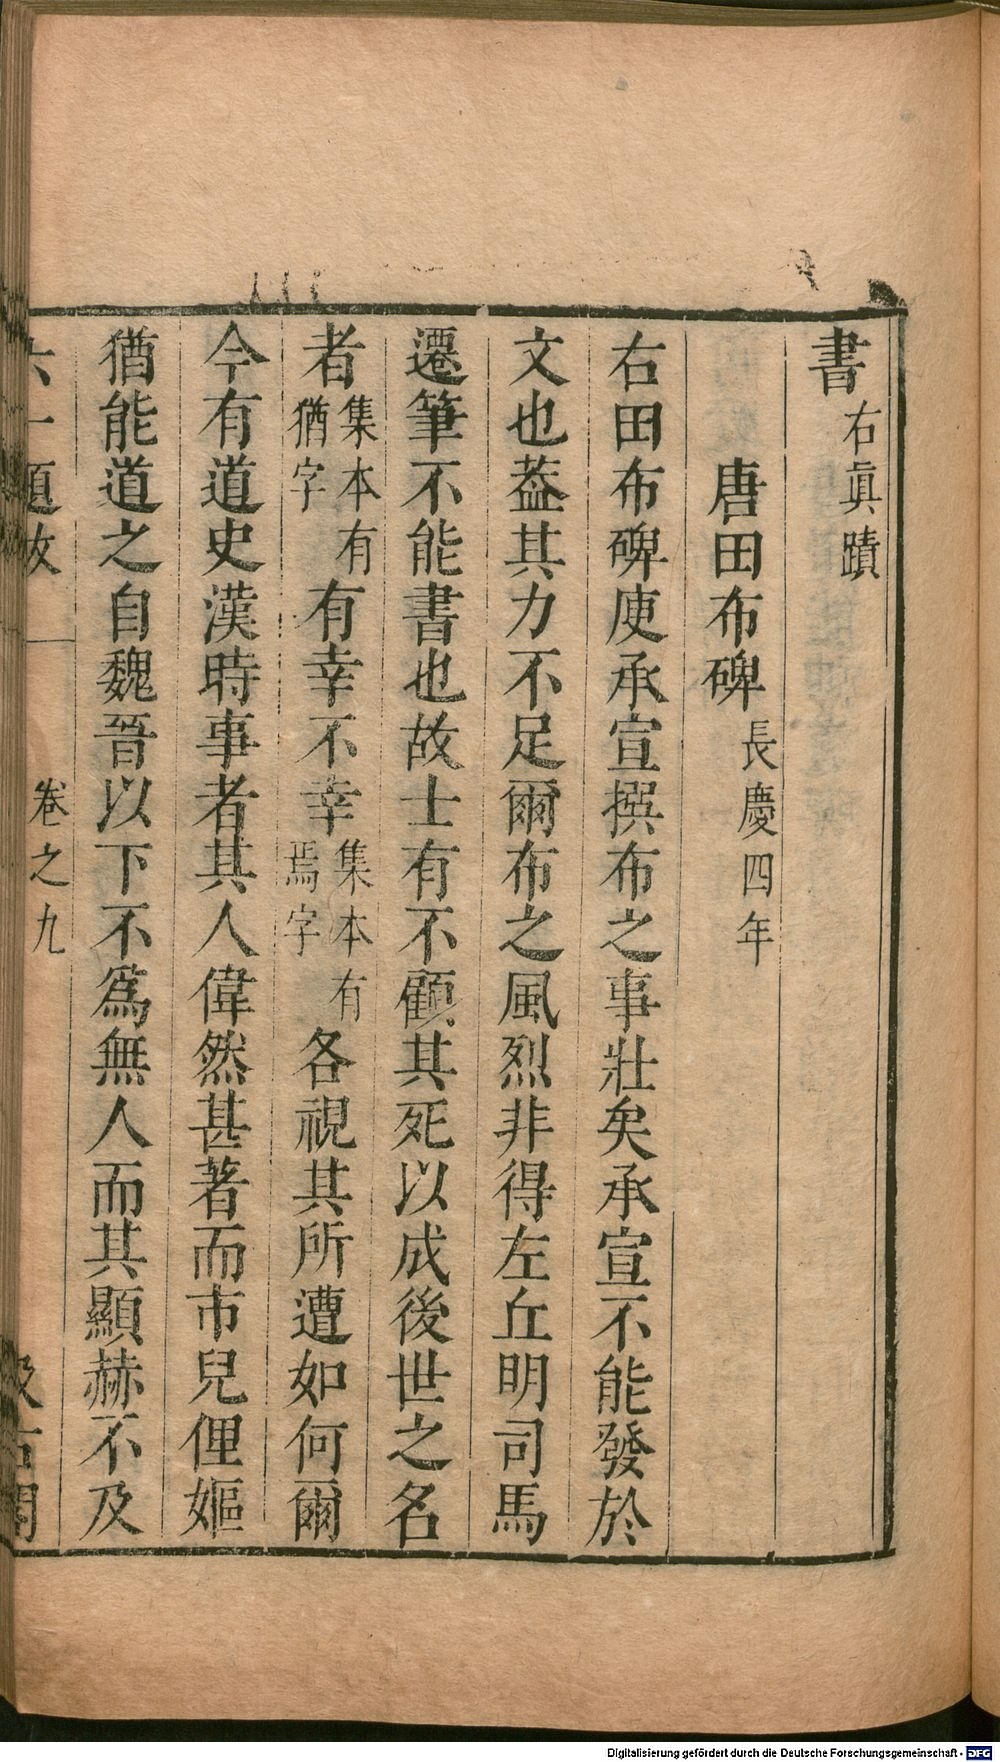 書右眞蹟
唐田布碑長慶四年
右田布碑庾承宣撰布之事壯矣承宣不能發於
文也葢其力不足爾布之風烈非得左丘明司馬
遷筆不能書也故士有不顧其死以成後世之名
者集本有猶字有幸不幸集本有焉字各視其所遭如何爾
今有道史漢時事者其人偉然甚著而市兒俚嫗
猶能道之自魏晉以下不爲無人而其顯赫不及
六一題跋 卷之九 汲古閣
Digitalisierung gefördert durch die Deutsche Forschungsgemeinschaft - DFG